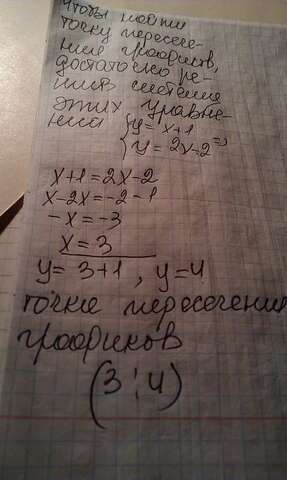 Чтобы найти
точку пересече-
ния графиков,
достаточно ре-
шить систему
этих уравне-
ний { y = x+1
y = 2x-2 =>
x+1=2x-2
x-2x=-2-1
-x=-3
x=3
y= 3+1, y=4
точке пересечения
графиков
(3;4)